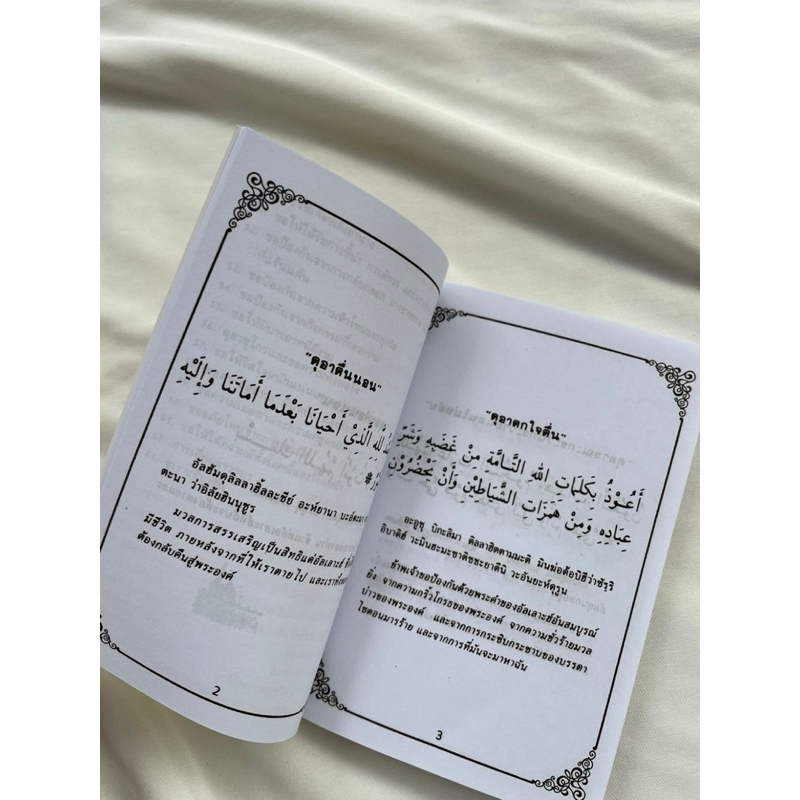 "ดุอาตื่นนอน"
لله الَّذِيْ أَحْيَانَا بَعْدَمَا أَمَاتَنَا وَإِلَيْهِ
อัลฮัมดุลิลลาฮิลละซีย์ อะห์ยานา บะอ์ดะมา
ตะนา ว่าอิลัยฮินนูซูร
มวลการสรรเสริญเป็นสิทธิแด่อัลเลาะฮ์
มีชีวิต ภายหลังจากที่ให้เราตายไป และเรา
ต้องกลับคืนสู่พระองค์
2
"ดุอาตกใจตื่น"
أَعُوْذُ بِكَلِمَاتِ اللهِ التَّامَّةِ مِنْ غَضَبِهِ وَشَرِّ
عِبَادِهِ وَمِنْ هَمَزَاتِ الشَّيَاطِيْنِ وَأَنْ يَحْضُرُوْنِ
อะอูซุ บิกะลิมา ติลลาฮิตตามมะติ มินฆ่อด้อบิฮีว่าชัรฺริ
อิบาดิฮ์ วะมินฮะมะซาติชชะยาตีนิ วะอันยะห์ดุรูน
ข้าพเจ้าขอป้องกันด้วยพระคำของอัลเลาะฮ์อันสมบูรณ์
ยิ่ง จากความกริ้วโกรธของพระองค์ จากความชั่วร้ายมวล
บ่าวของพระองค์ และจากการกระซิบกระซาบของบรรดา
ไชตอนมารร้าย และจากการที่มันจะมาหาฉัน
3